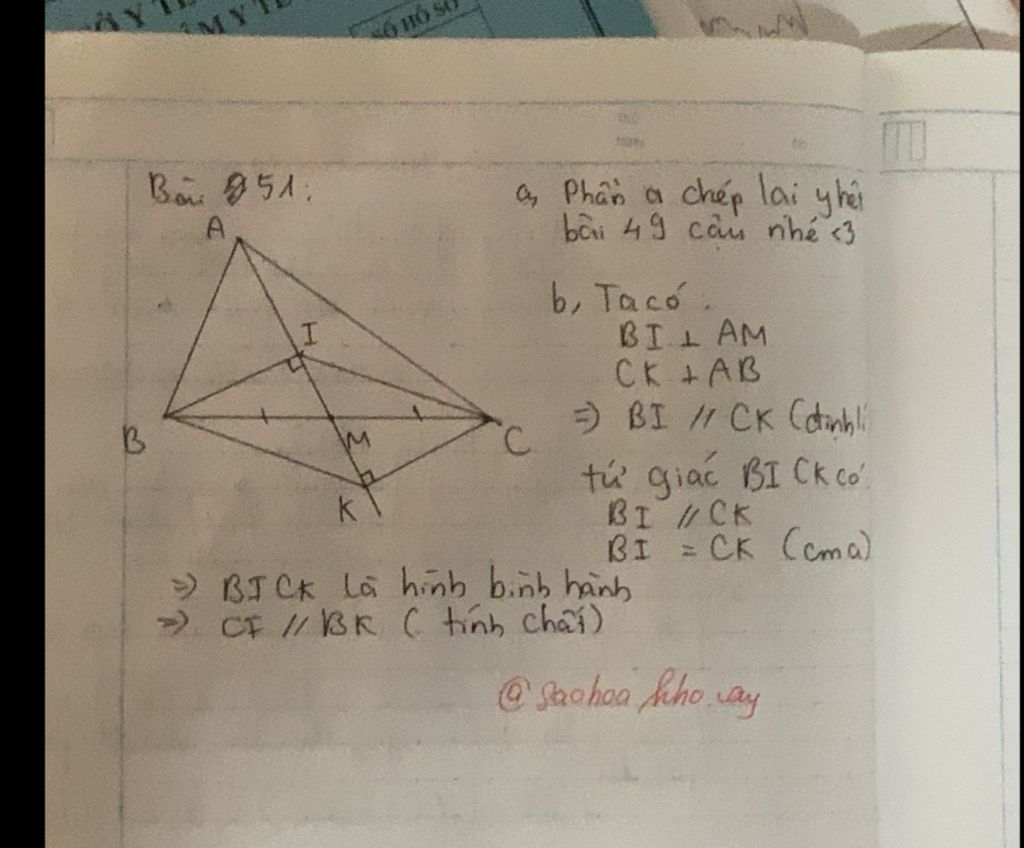 SỐ HỒ SƠ
Bài 51:
a, Phần a chép lại y hệt
bài 49 câu nhé <3
A
I
B
M
C
K
b, Ta có:
BI ⊥ AM
CK ⊥ AB
=> BI // CK (định lí
tứ giác BICK có
BI // CK
BI = CK (cma)
=> BICK là hình bình hành
=> CI // BK (tính chất)
@saohoa kho.vay